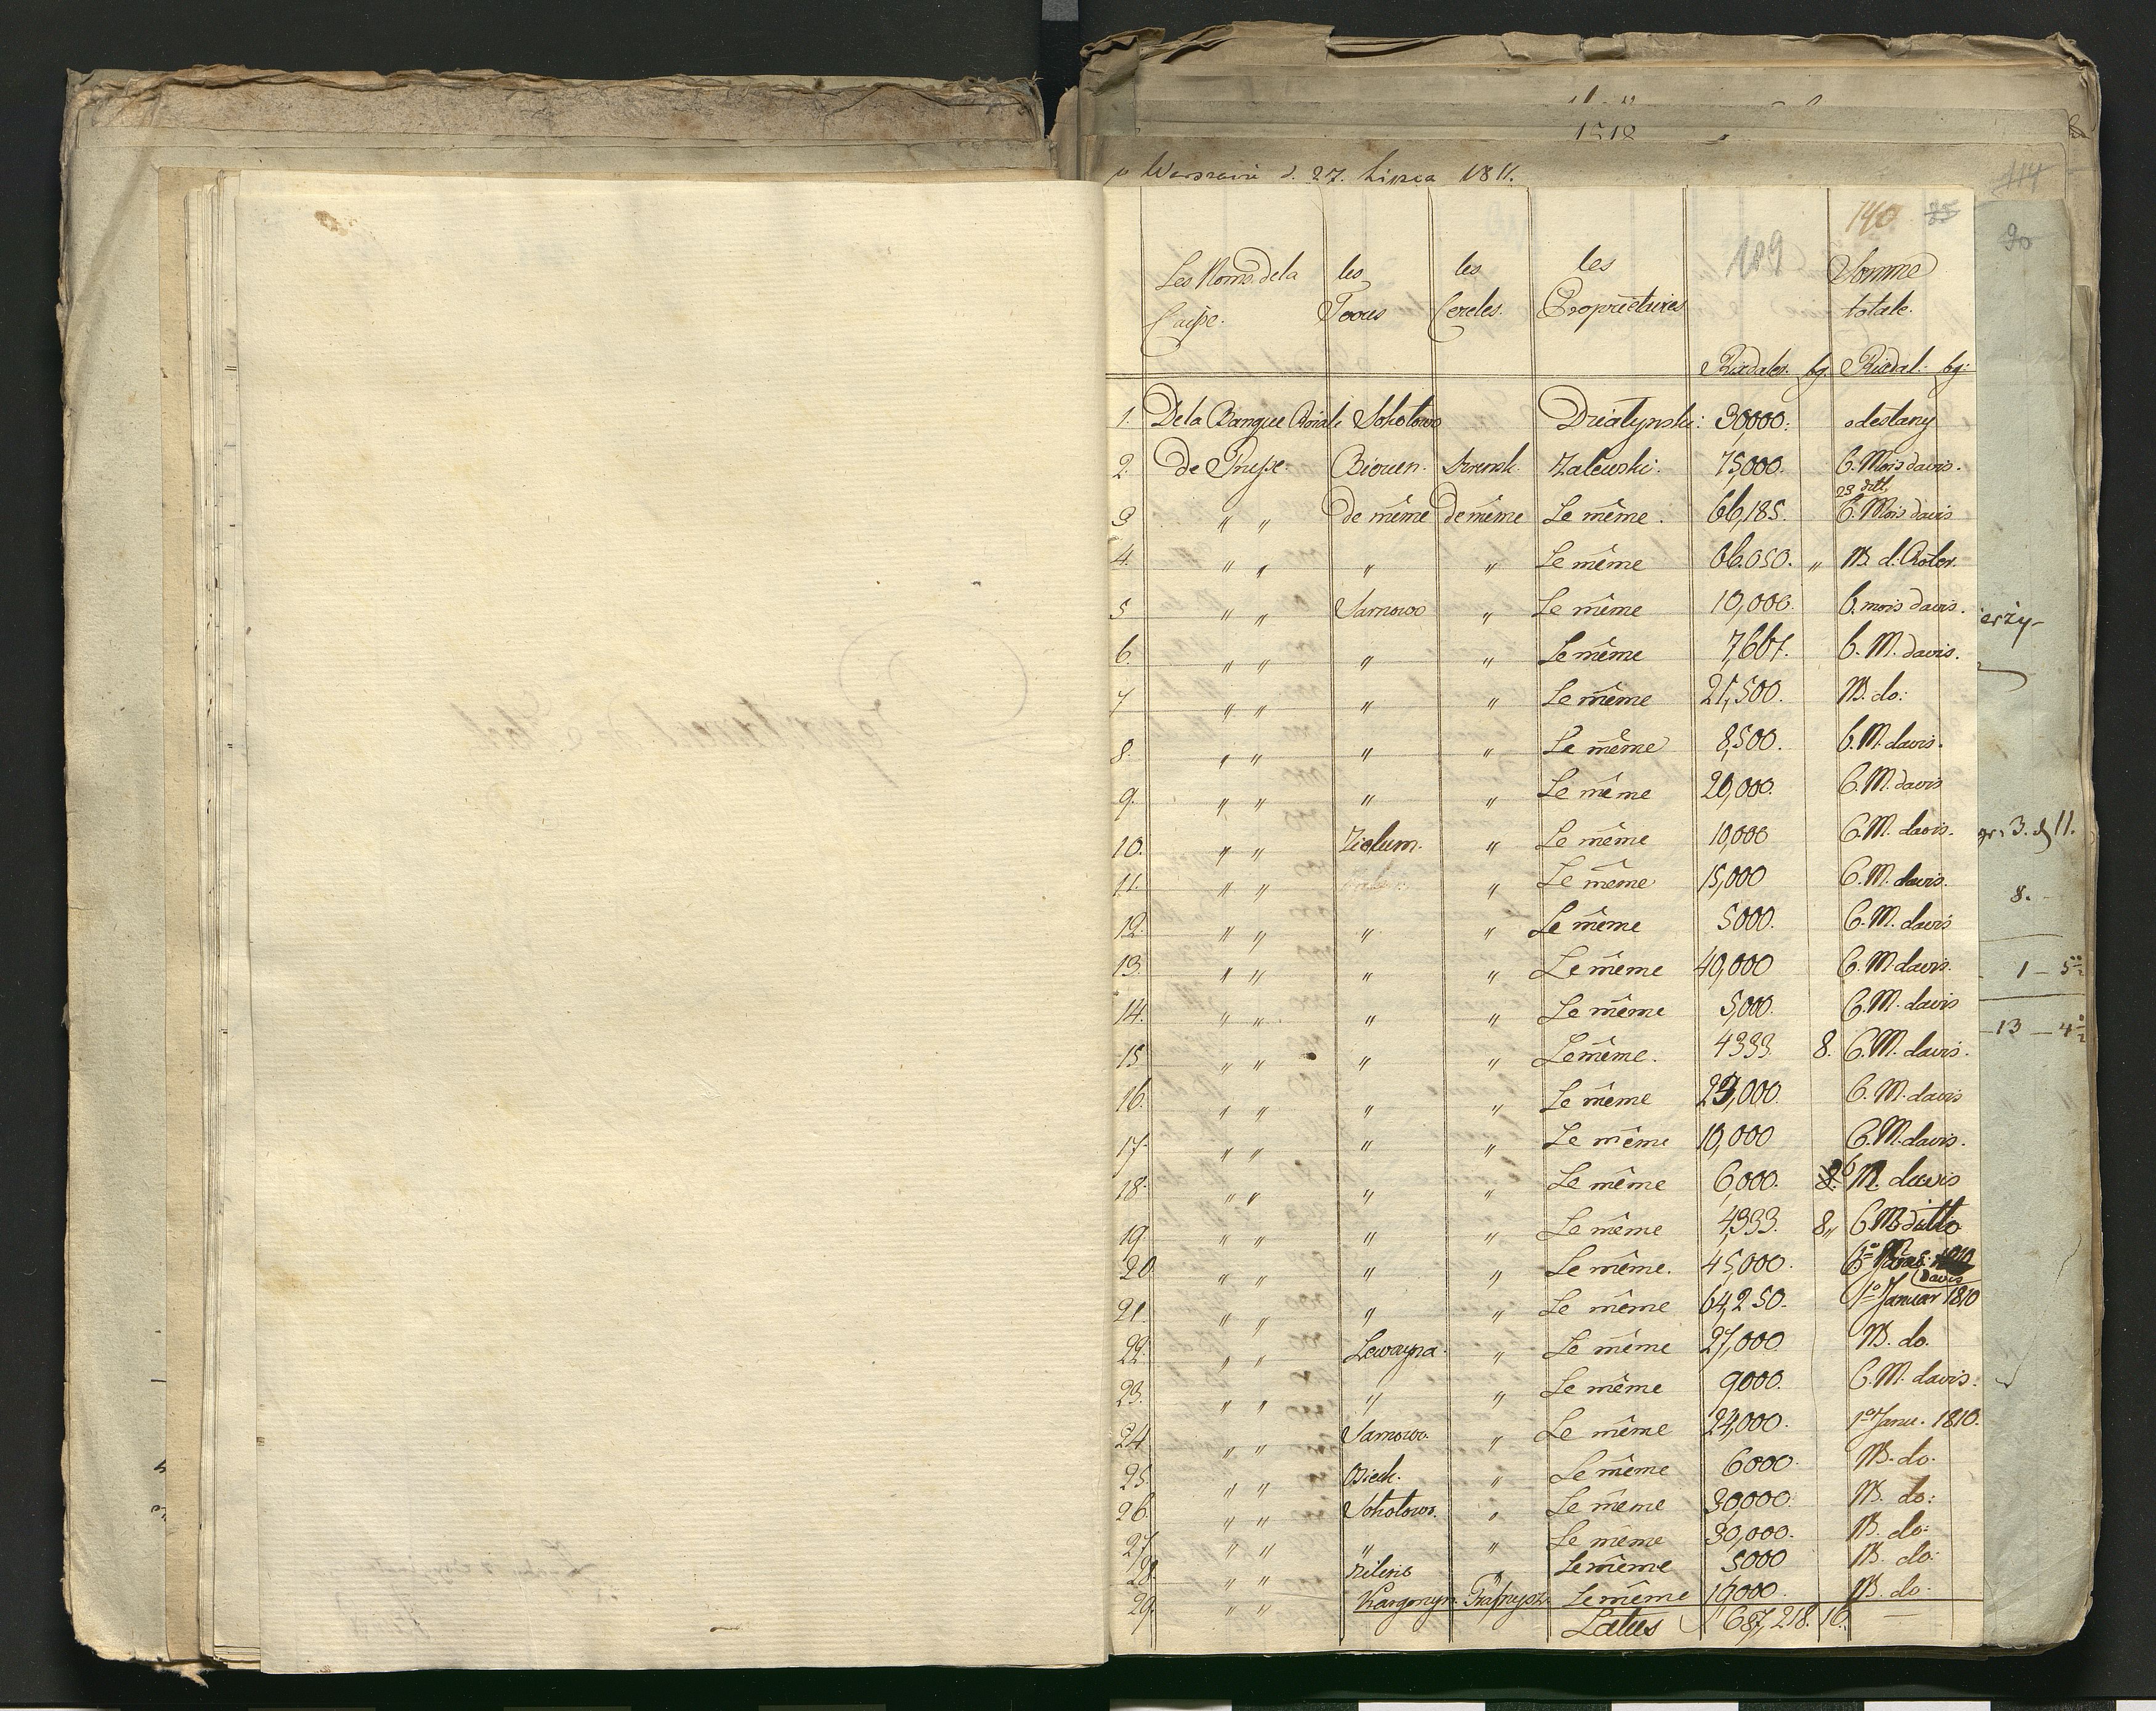 w Warszawie d. 27. Lipca 1811.
114
140
90
189
Les Noms dela Caisse. les Terres les Cercles. les Proprietaires Somme totale.
Rixdaler. bg. Rixdal: bg:
1. De la Banque Roiale Sokolowo Dzialynski: 30000: odeslany
2. de Prusse. Biezun. Szrensk. Zalewski. 75,000. 6. Mois davis.
23 ditt.
3 " " de même de même Le même. 66,185. 6. Mois davis
4. " " " " Le même 66.050. " B. d.
5 " " Sarnowo " Le même 10,000. 6. mois davis.
6. " " " " Le même 7,667. 6. M. davis.
7 " " " " Le même 21,500. B. do:
8. " " " " Le même 8,500. 6. M. davis.
9. " " " " Le même 20,000. 6. M. davis
10. " " Zielum. " Le même 10,000 6. M. davis.
11. " " " Le même 15,000 6. M. davis.
12. " " " " Le même 5000. 6. M. davis
13. " " " " Le même 40,000 6. M. davis.
14. " " " " Le même 5,000. 6. M. davis
15 " " " " Le même. 4333. 8. 6. M. davis.
16. " " " " Le même 23,000. 6. M. davis
17. " " " " Le même 10,000 6. M. davis.
18. " " " " Le même 6,000. 8. 6 M. davis
19. " " " " Le même 4,333. 8" 6 M. ditto
20. " " " " Le même. 45,000. davis
21. " " " " Le même 64,250. 1o Januar 1810
22. " " " Le même 27,000 B. do.
23. " " " " Le même 9000. 6. M. davis.
24. " " Sarnowo. " Le même 24,000. 1o Janu. 1810.
25. " " " Le même 6000. B. do.
26. " " Sokolowo. " Le même 30,000. B. do:
27. " " " " Le même 30,000. B. do:
28. " " " Le même 5000 B. do:
29. " " Le même 19000. B. do.
Latus 687,218. 16.
erzy-
gr. 3. d 11.
8.
1 — 5
13 — 4